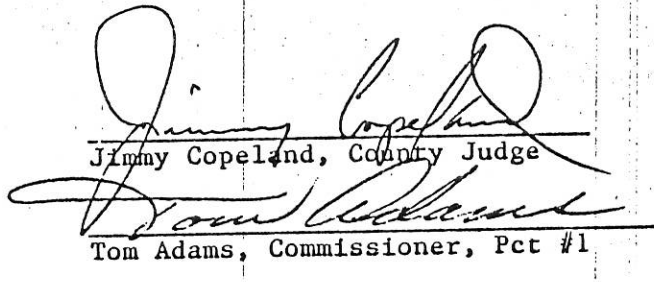 Jimmy Copeland
Jimmy Copeland, County Judge
Tom Adams
Tom Adams, Commissioner, Pct #1